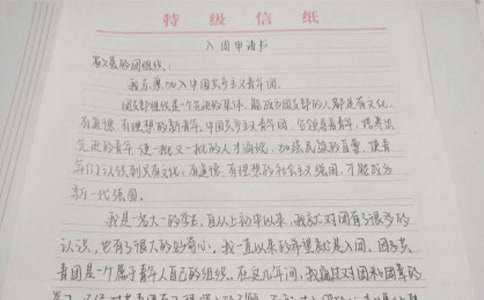 特级信纸
入团申请书
敬爱的团组织：
我志愿加入中国共产主义青年团。
团支部组织是一个先进的集体，能成为团支部的人都是有文化、
有道德、有理想的新青年。中国共产主义青年团，引领着青年，培养出
先进的青年，使一批又一批的人才涌现，加强民族的力量，使青
年们认识到只有文化、有道德、有理想的社会主义强国，才能成为
新一代强国。
我是一名大一的学生，自从上初中以来，我就对团有了很多的
认识，也有了很大的好奇心。我一直以来的希望就是入团。因为共
青团是一个属于青年人自己的组织。在这几年间，我通过对团和团章的